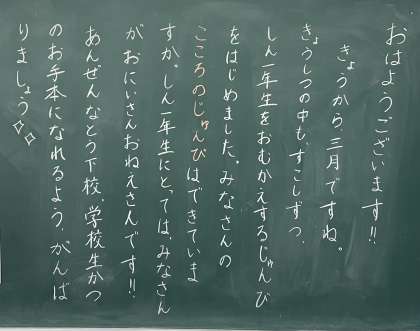 おはようございます!!
きょうから、三月ですね。
きょうしつの中も、すこしずつ、
しん一年生をおむかえするじゅんび
をはじめました。みなさんの
こころのじゅんびはできていま
すか。しん一年生にとっては、みなさん
がおにいさんおねえさんです!!
あんぜんなとう下校、学校生かつ
のお手本になれるよう、がんば
りましょう✧✧